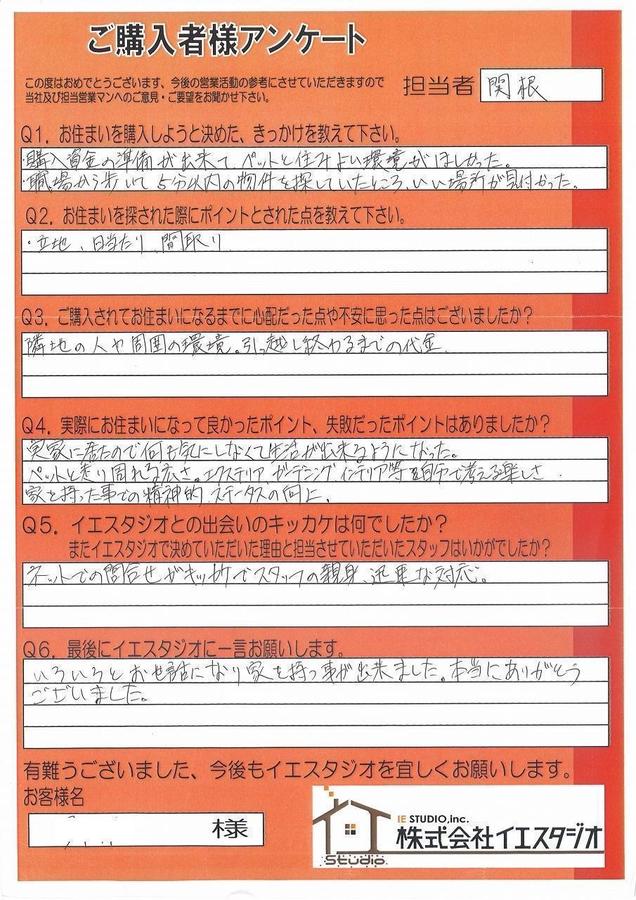 ご購入者様アンケート
この度はおめでとうございます、今後の営業活動の参考にさせていただきますので
当社及び担当営業マンへのご意見・ご要望をお聞かせ下さい。
担当者 関根
Q1. お住まいを購入しようと決めた、きっかけを教えて下さい。
・購入資金の準備が出来て、ペットと住みよい環境がほしかった。
・職場から歩いて5分以内の物件を探していたところ、いい場所が見付かった。
Q2. お住まいを探された際にポイントとされた点を教えて下さい。
・立地、日当たり、間取り
Q3. ご購入されてお住まいになるまでに心配だった点や不安に思った点はございましたか？
隣地の人や周囲の環境。引っ越し終わるまでの代金。
Q4. 実際にお住まいになって良かったポイント、失敗だったポイントはありましたか？
実家に居たので何も気にしなくて生活が出来るようになった。
ペットと走り回れる広さ。エクステリア、ガーデニング、インテリア等を自分で考える楽しさ。
家を持った事での精神的、ステータスの向上。
Q5. イエスタジオとの出会いのキッカケは何でしたか？
またイエスタジオで決めていただいた理由と担当させていただいたスタッフはいかがでしたか？
ネットでの問合せがキッカケでスタッフの親身、迅速な対応。
Q6. 最後にイエスタジオに一言お願いします。
いろいろとお世話になり家を持つ事が出来ました。本当にありがとう
ございました。
有難うございました、今後もイエスタジオを宜しくお願いします。
お客様名
様
IE STUDIO,inc.
株式会社イエスタジオ
Studio